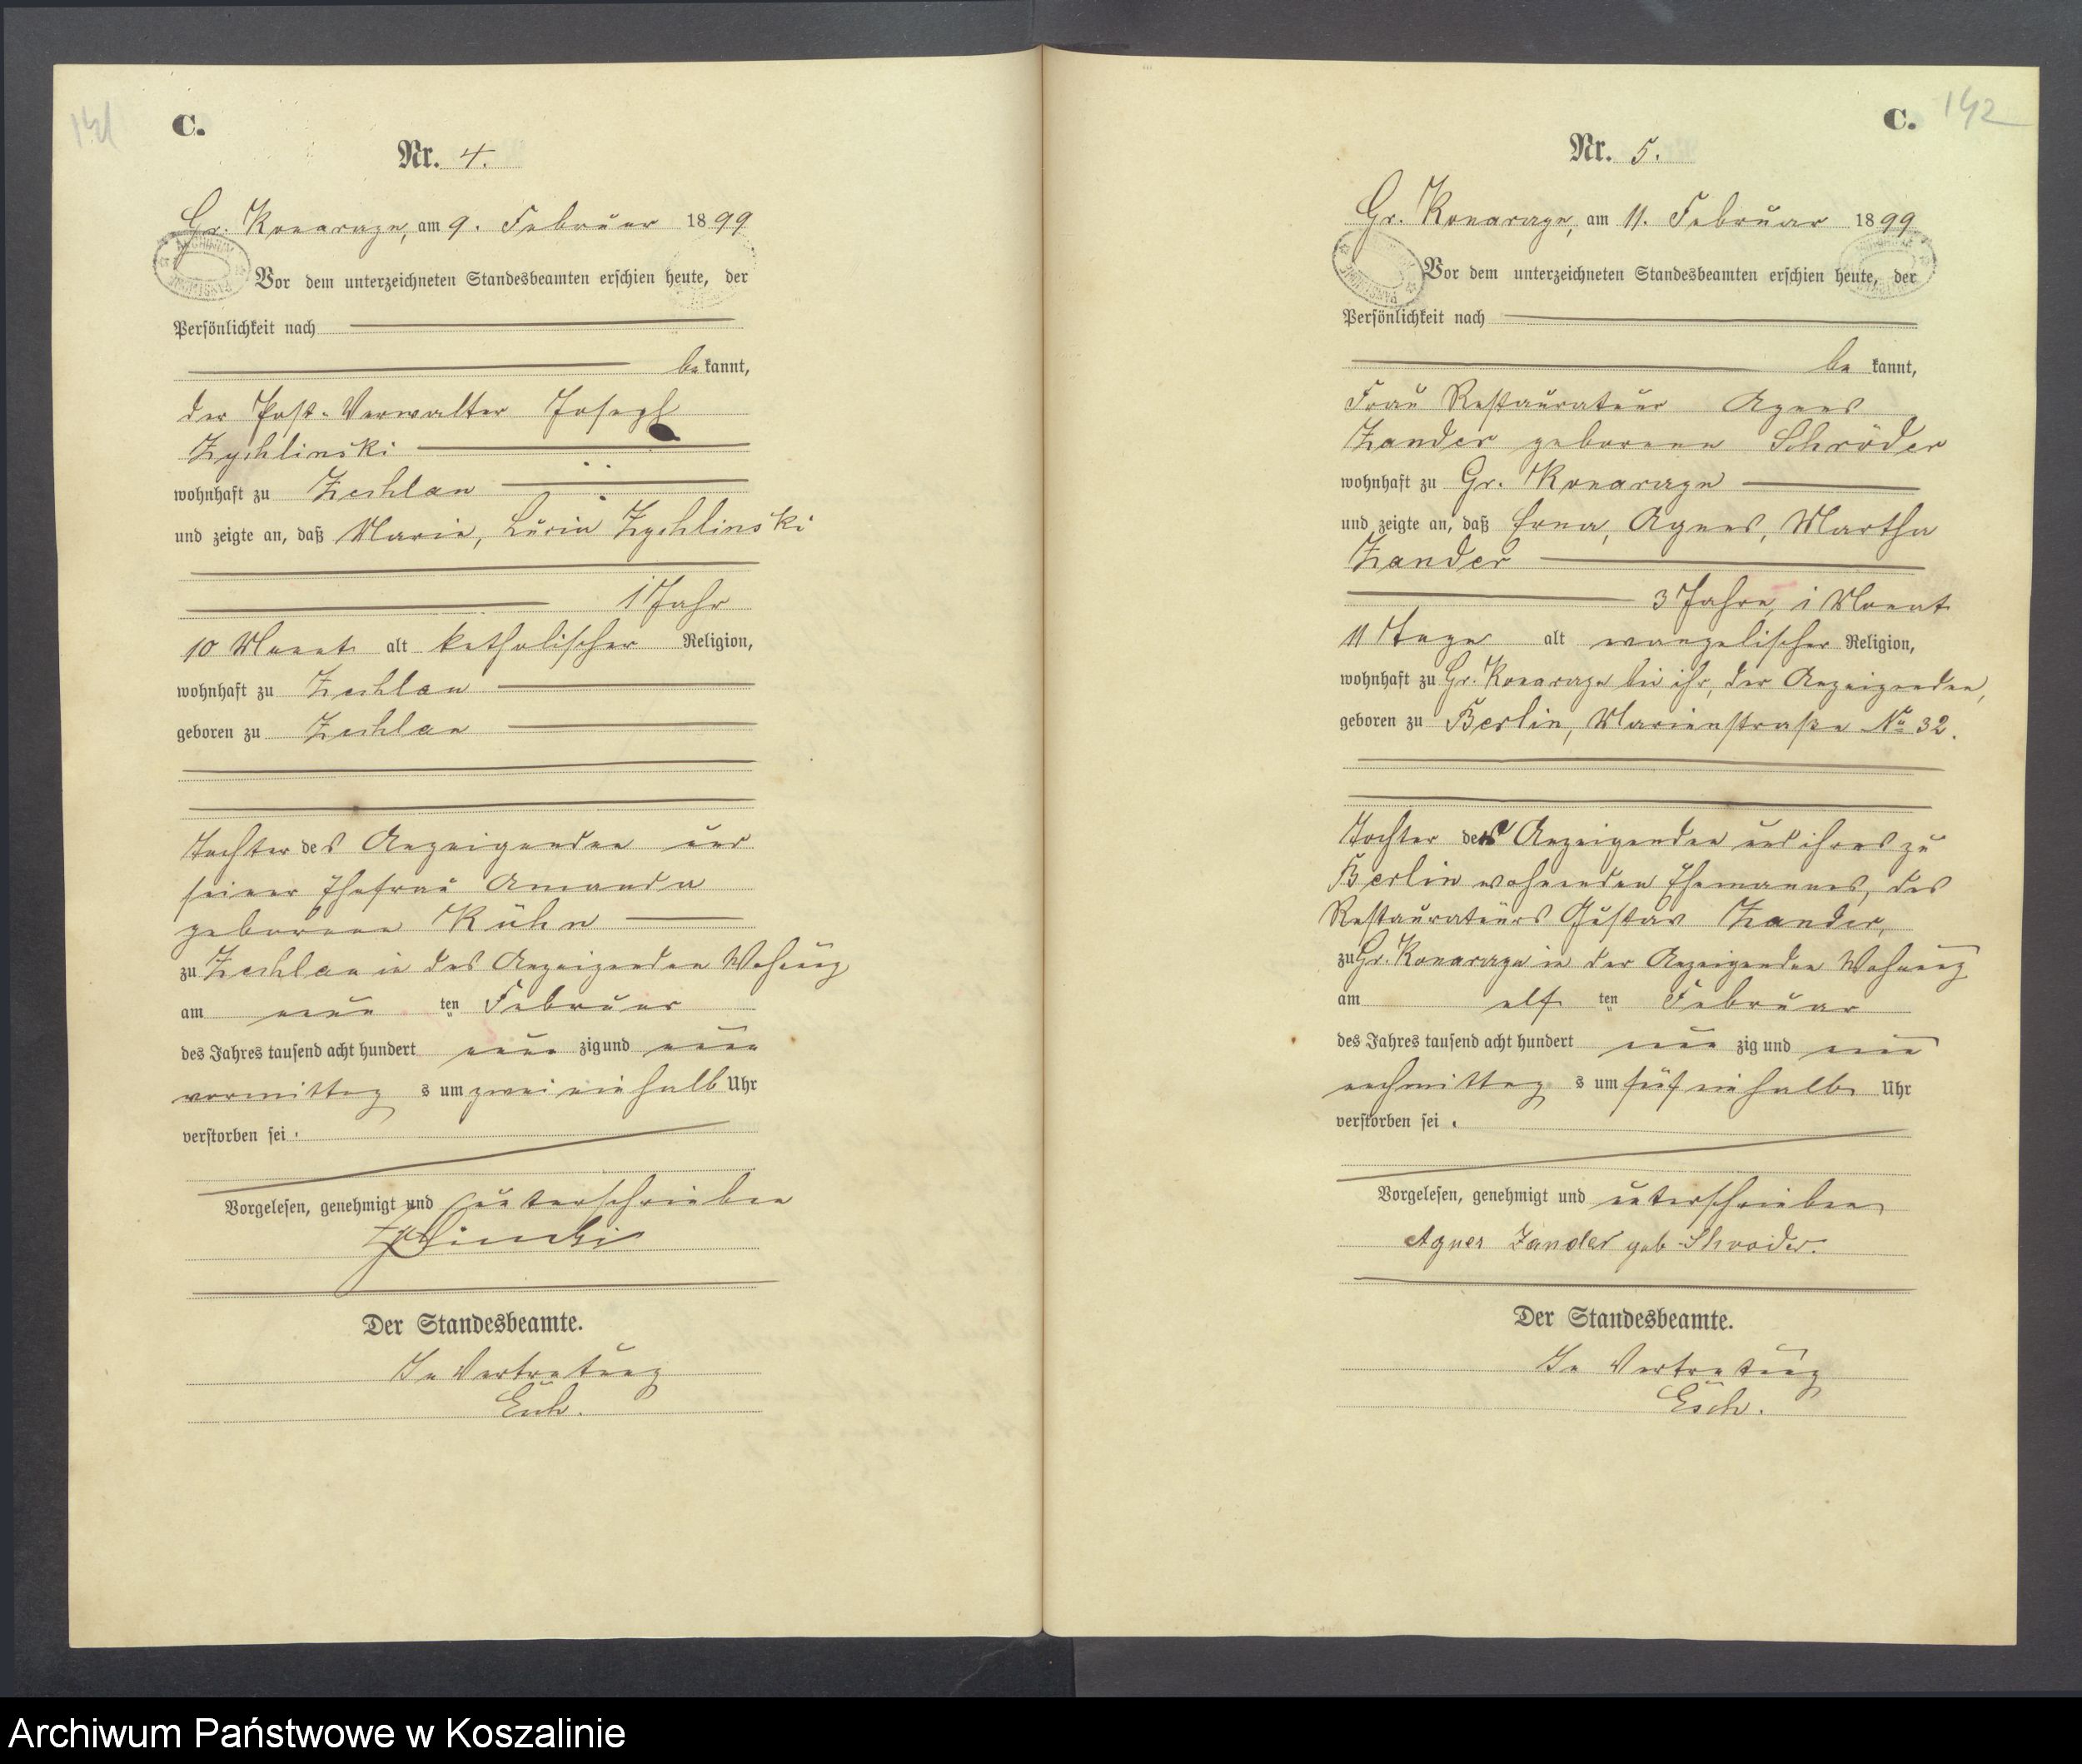 141
C.
Nr. 4.
Gr. Konarzyn, am 9. Februar 1899
Vor dem unterzeichneten Standesbeamten erschien heute, der
Persönlichkeit nach
bekannt,
der Post-Verwalter Joseph
Zychlinski
wohnhaft zu Zechlau
und zeigte an, daß Marie, Lucia Zychlinski
1 Jahr
10 Monat alt katholischer Religion,
wohnhaft zu Zechlau
geboren zu Zechlau
Tochter des Anzeigenden und
seiner Ehefrau Amanda
geborene Kühn
zu Zechlau in des Anzeigenden Wohnung
am neun ten Februar
des Jahres tausend acht hundert neun zig und neun
vormittag s um zwei ein halb Uhr
verstorben sei.
Vorgelesen, genehmigt und unterschrieben
Zychlinski
Der Standesbeamte.
In Vertretung
Esch.
142
C.
Nr. 5.
Gr. Konarzyn, am 11. Februar 1899
Vor dem unterzeichneten Standesbeamten erschien heute, der
Persönlichkeit nach
be kannt,
Frau Restaurateur Agnes
Zander geborene Schröder
wohnhaft zu Gr. Konarzyn
und zeigte an, daß Erna, Agnes, Martha
Zander
3 Jahre, 1 Monat
11 Tage alt evangelischer Religion,
wohnhaft zu Gr. Konarzyn bei ihr, der Anzeigenden,
geboren zu Berlin, Marienstraße No 32.
Tochter der Anzeigenden und ihres zu
Berlin wohnenden Ehemannes, des
Restaurateurs Gustav Zander,
zu Gr. Konarzyn in der Anzeigenden Wohnung
am elf ten Februar
des Jahres tausend acht hundert neun zig und neun
nachmittag s um fünf ein halb Uhr
verstorben sei.
Vorgelesen, genehmigt und unterschrieben
Agnes Zander geb. Schroder.
Der Standesbeamte.
In Vertretung
Esch.
Archiwum Państwowe w Koszalinie